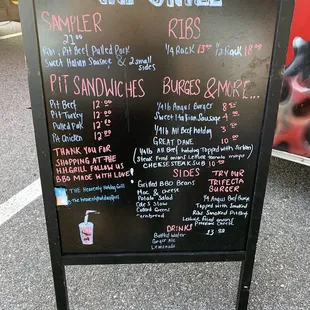 THE GRILL
SAMPLER
23.00
Ribs, Pit Beef Pulled Pork
Sweet Italian Sausage & 2 small
sides
RIBS
1/4 Rack 13.00 1/2 Rack 18.00
PIT SANDWICHES
Pit Beef 12.00
Pit Turkey 12.00
Pulled Pork 12.00
Pit Chicken 12.00
THANK YOU FOR
SHOPPING AT THE
H.H.GRILL FOLLOW US
BBQ MADE WITH LOVE!
The Heavenly Hotdog Grill
BURGES & MORE...
1/4 lb Angus Burger 8
Sweet Italian Sausage
1/4 lb All Beef hotdog
GREAT DANE 10
(1/4 lb All Beef hotdog Topped with
Steak fried onions Lettuce tomato mayo
CHEESESTEAK SUB
SIDES
Grilled BBQ Beans
Mac & cheese
Potato Salad
Cole Slaw
Collard Greens
cornbread
TRY OUR
TRIFECTA
BURGER
Angus Beef Burger
Topped with Smoked
Ribs Smoked Pit Beef
Cheese
DRINKS
Bottled Water
Ginger Ale
Lemonade